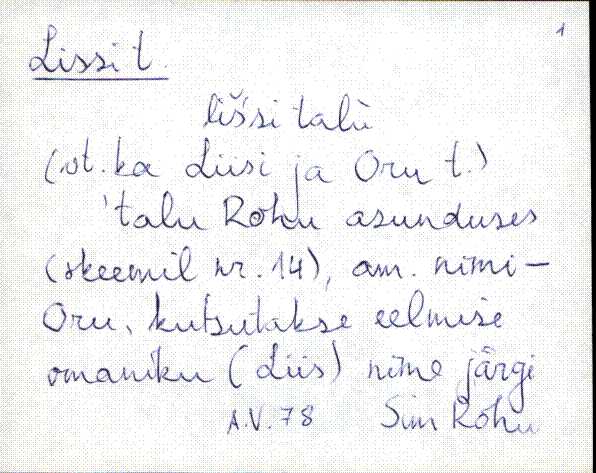 1
Lissi t.
lišsi talù
(vt. ka Liisi ja Oru t.)
'talu Rohu asunduses
(skeemil nr. 14), am. nimi-
Oru, kutsutakse eelmise
omaniku (Liis) nime järgi
A.V. 78 Sim Rohu